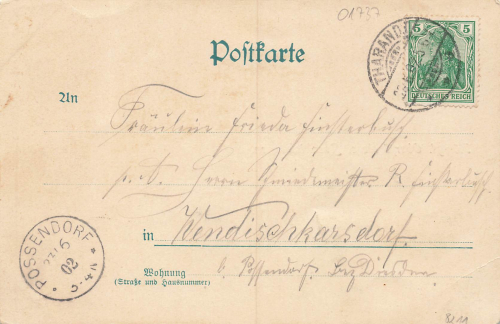 01737
Postkarte
5 5
DEUTSCHES REICH
THARANDT
An
Fräulein Frieda Fichterbusch
p. A. Herrn Schmiedemeister R. Fichterbusch
in Wendischkarsdorf.
b. Possendorf. Bez Dresden.
Wohnung
(Straße und Hausnummer)
POSSENDORF
6
02